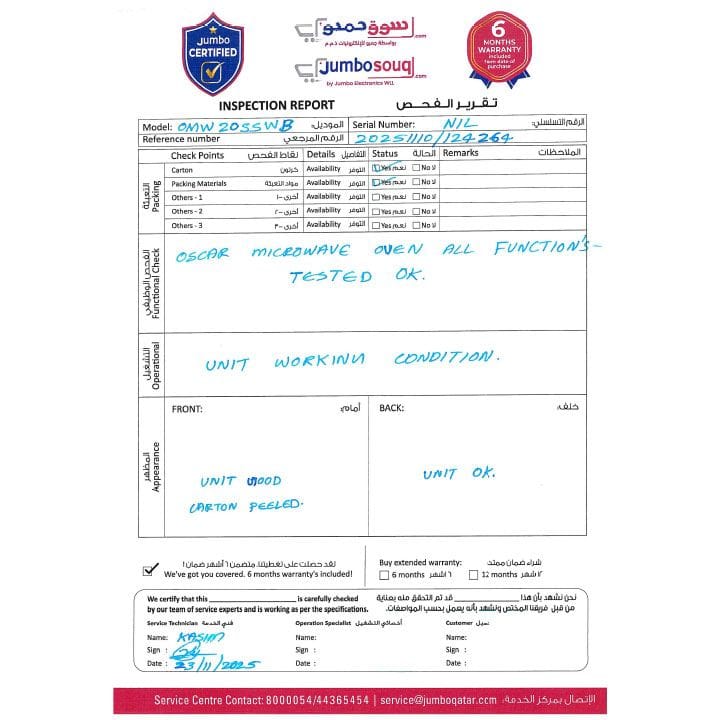 Jumbo
CERTIFIED
سوق جمبو.com
بواسطة جمبو للإلكترونيات ذ.م.م
jumbosouq.com
by Jumbo Electronics WLL
6
MONTHS
WARRANTY
included
from date of
purchase
INSPECTION REPORT تقرير الفحص
Model: OMW 20SSWB الموديل: Serial Number: NIL الرقم التسلسلي:
Reference number الرقم المرجعي 2025/110/124264
Check Points نقاط الفحص Details التفاصيل Status الحالة Remarks الملاحظات
التعبئة Packing
Carton كرتون Availability التوفر Yes نعم No لا
Packing Materials مواد التعبئة Availability التوفر Yes نعم No لا
Others - 1 أخرى -١ Availability التوفر Yes نعم No لا
Others - 2 أخرى -٢ Availability التوفر Yes نعم No لا
Others - 3 أخرى -٣ Availability التوفر Yes نعم No لا
الفحص الوظيفي Functional Check
OSCAR MICROWAVE OVEN ALL FUNCTION'S -
TESTED OK.
التشغيل Operational
UNIT WORKINN CONDITION.
المظهر Appearance
FRONT: أمام: BACK: خلف:
UNIT GOOD
CARTON PEELED.
UNIT OK.
لقد حصلت على تغطيتنا. متضمن ٦ أشهر ضمان!
We've got you covered. 6 months warranty's included!
Buy extended warranty: شراء ضمان ممتد:
6 months ٦ أشهر 12 months ١٢ شهر
We certify that this is carefully checked
by our team of service experts and is working as per the specifications.
نحن نشهد بأن هذا قد تم التحقق منه بعناية
من قبل فريقنا المختص ونشهد بأنه يعمل بحسب المواصفات.
Service Technician فني الخدمة Operation Specialist أخصائي التشغيل Customer
Name: KASIM Name: Name:
Sign : Sign : Sign :
Date : 23/11/2025 Date : Date :
Service Centre Contact: 8000054/44365454 | service@jumboqatar.com | الإتصال بمركز الخدمة: